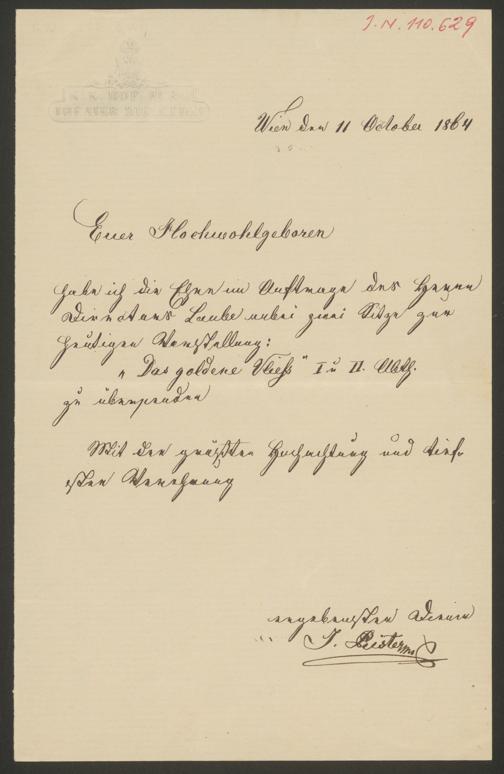 J.N. 110.629
Wien den 11 October 1864
Euer Hochwohlgeboren
habe ich die Ehre im Auftrage des Herrn
Directors Laube anbei zwei Sitze zur
heutigen Vorstellung:
„Das goldene Vließ" I u II. Abth.
zu übersenden
Mit der größten Hochachtung und tief-
sten Verehrung
ergebenster Diener
J.